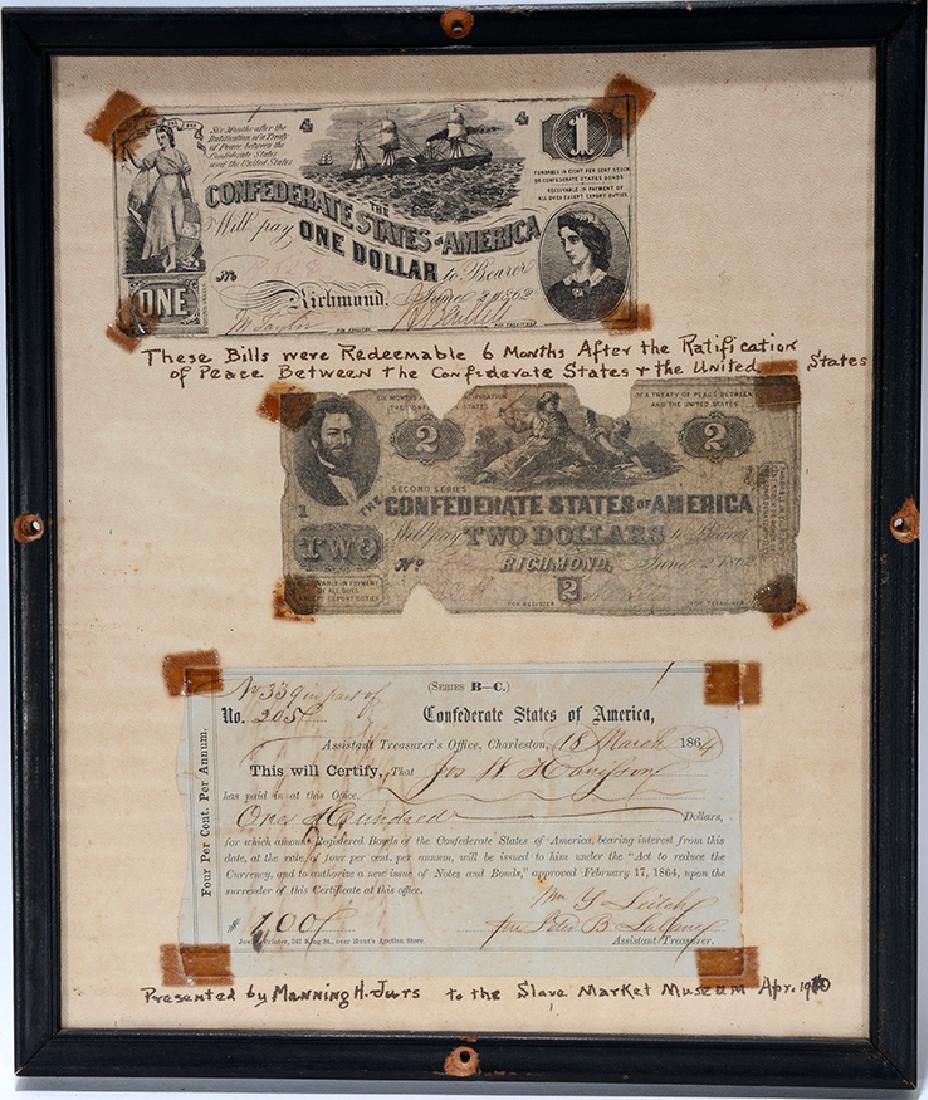 Six Months after the
Ratification of a Treaty
of Peace between the
Confederate States
and the United States
4
4
1
FUNDABLE IN EIGHT PER CENT STOCK
OR CONFEDERATE STATES BONDS
RECEIVABLE IN PAYMENT OF
ALL DUES EXCEPT EXPORT DUTIES.
THE
CONFEDERATE STATES OF AMERICA
Will pay ONE DOLLAR to Bearer
No
Richmond, June 2 1862
ONE
FOR REGISTER
FOR TREASURER
These Bills were Redeemable 6 Months After the Ratification
of Peace Between the Confederate States & the United States
SIX MONTHS
OF A TREATY OF PEACE BETWEEN
AND THE UNITED STATES
2
2
SECOND SERIES
1
THE CONFEDERATE STATES OF AMERICA
Will pay TWO DOLLARS to Bearer
TWO
No
RICHMOND, June 2 1862
IN PAYMENT
OF ALL DUES
EXCEPT EXPORT DUTIES
FOR REGISTER
2
FOR TREASURER
No 339 in part of
No. 205
(SERIES B—C.)
Confederate States of America,
Assistant Treasurer's Office, Charleston, 18 March 1864
Four Per Cent. Per Annum.
This will Certify, That Jos W
has paid in at this Office,
One Hundred Dollars,
for which amount Registered Bonds of the Confederate States of America, bearing interest from this
date, at the rate of four per cent. per annum, will be issued to him under the "Act to reduce the
Currency, and to authorize a new issue of Notes and Bonds," approved February 17, 1864, upon the
surrender of this Certificate at this office.
$ 100
Printer, 347 King St., over Hunt's Auction Store.
Assistant Treasurer.
Presented by Manning H. Jurs to the Slave Market Museum Apr.